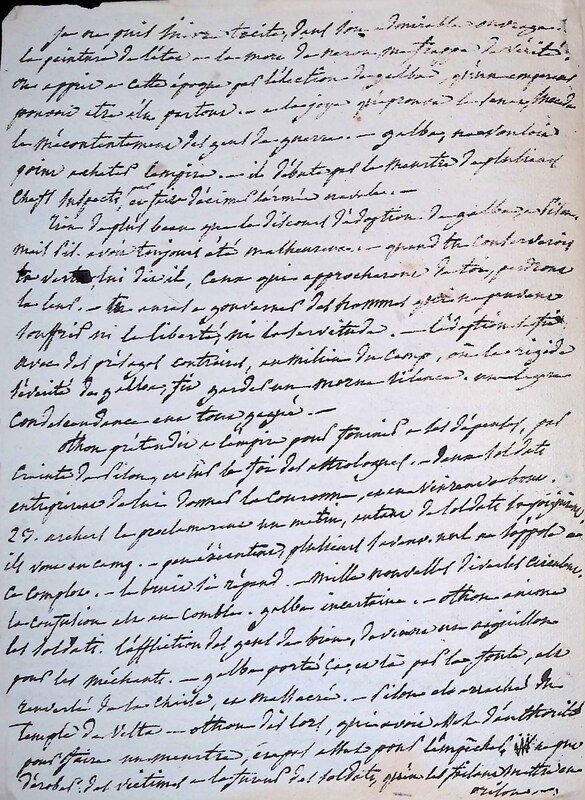 je ne puis suivre tacite, dans son admirable ouvrage.
la peinture de l'état a la mort de neron me frappe de vérité.
on apprit a cette époque par l'élection de galba, qu'un empereur
pouvoit etre élu partout. – a la joye qu'éprouva le senat,
le mécontentement des gens de guerre. – galba, ne vouloit
point acheter l'empire. – il débute par le meurtre de plusieurs
chefs suspects, et fait décimer l'armée navale. –
rien de plus beau que le discours d'adoption de galba a pison,
mais pis. avoit toujours été malheureux. – quand tu conserverois
ta vertu lui dit il, ceux qui approcheront de toi, perdront
la leur. – tu auras a gouverner des hommes qui ne peuvent
souffrir ni la liberté, ni la servitude. – l'adoption se fit
avec des présages contraires, au milieu du camp, où la rigide
sévérité de galba, fit garder un morne silence. une légère
condescendance eut tout gagné. –
othon prétendit a l'empire pour fournir a ses dépenses, par
crainte de pison, et sur la foi des astrologues. – deux soldats
entreprirent de lui donner la couronne, et en vinrent a bout.
23. archers le proclamerent un matin, autant de soldats se joignirent
ils vont au camp. – peu d'exécution, plusieurs savent, nul ne s'oppose a
ce complot. – le bruit s'en répand. – mille nouvelles diverses circulent
la confusion est au comble. galba incertain. – othon anime
les soldats. l'affliction des gens de bien, devient un aiguillon
pour les méchants. – galba porté çà et là par la foule, est
renversé de la chaise, et massacré. – pison est arraché du
temple de vesta – othon des lors, qui avoit assez d'authorité
pour faire un meurtre, n'en a pas assez pour l'empecher ne put
dérober des victimes a la fureur des soldats, qu'en les faisant mettre en
prison –